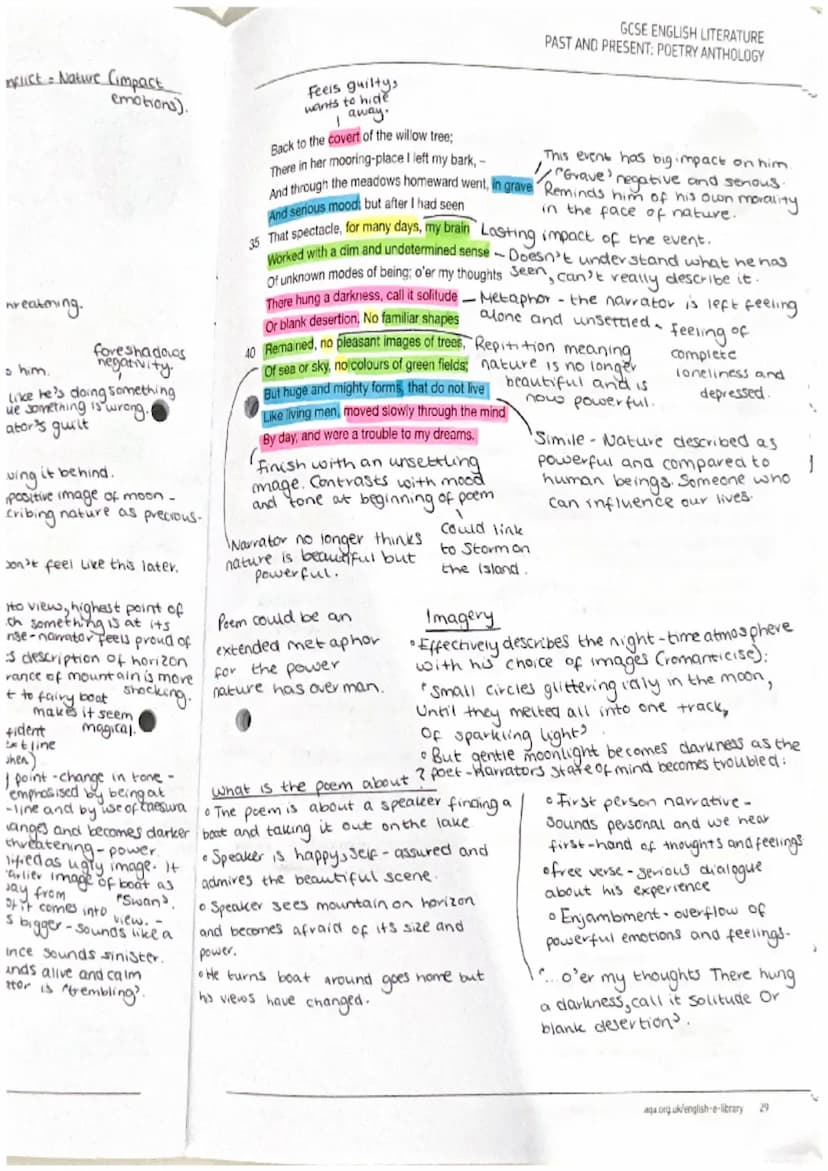 GCSE ENGLISH LITERATURE
PAST AND PRESENT: POETRY ANTHOLOGY
= Nature (impact
emotions).
hreatening.
foreshadows
negativity.
him.
like he's doing something
something is wrong.
guilt
it behind.
positive image of moon -
nature as precious.
don't feel like this later.
view, highest point of
something is at its
narrator feels proud of
description of horizon
of mountain is more
shocking.
to fairy boat
makes it seem
magical.
line
point - change in tone -
emphasised by being at
- line and by use of caesura
and becomes darker
threatening - power.
as ugly image. It
earlier image of boat as
from "Swan".
it comes into view. -
bigger - sounds like a
sounds sinister.
alive and calm
is "trembling".
Feels guilty,
wants to hide
away.
Back to the covert of the willow tree;
There in her mooring-place I left my bark, –
And through the meadows homeward went, in grave
And serious mood; but after I had seen
35 That spectacle, for many days, my brain
Worked with a dim and undetermined sense
Of unknown modes of being; o'er my thoughts
There hung a darkness, call it solitude
Or blank desertion. No familiar shapes
40 Remained, no pleasant images of trees,
Of sea or sky, no colours of green fields;
But huge and mighty forms, that do not live
Like living men, moved slowly through the mind
By day, and were a trouble to my dreams.
This event has big impact on him.
"Grave" negative and serious.
Reminds him of his own morality
in the face of nature.
Lasting impact of the event.
- Doesn't understand what he has
seen, can't really describe it.
- Metaphor - the narrator is left feeling
alone and unsettled - feeling of
complete
loneliness and
depressed.
Repitition meaning
nature is no longer
beautiful and is
now powerful.
Simile - Nature described as
powerful and compared to
human beings. Someone who
can influence our lives.
Finish with an unsettling
image. Contrasts with mood
and tone at beginning of poem
Could link
to Storm on
the Island.
Narrator no longer thinks
nature is beautiful but
powerful.
Poem could be an
extended metaphor
for the power
nature has over man.
Imagery
• Effectively describes the night-time atmosphere
with his choice of images (romanticise):
"Small circles glittering idly in the moon,
Until they melted all into one track,
Of sparkling light"
• But gentle moonlight becomes darkness as the
poet - Narrators state of mind becomes troubled:
What is the poem about?
• The poem is about a speaker finding a
boat and taking it out on the lake
• Speaker is happy, self-assured and
admires the beautiful scene.
• Speaker sees mountain on horizon
and becomes afraid of its size and
power.
• He turns boat around goes home but
his views have changed.
• First person narrative -
Sounds personal and we hear
first-hand of thoughts and feelings
• free verse - serious dialogue
about his experience
• Enjambment - overflow of
powerful emotions and feelings.
"... o'er my thoughts There hung
a darkness, call it Solitude Or
blank desertion".
aqa.org.uk/english-e-library 29